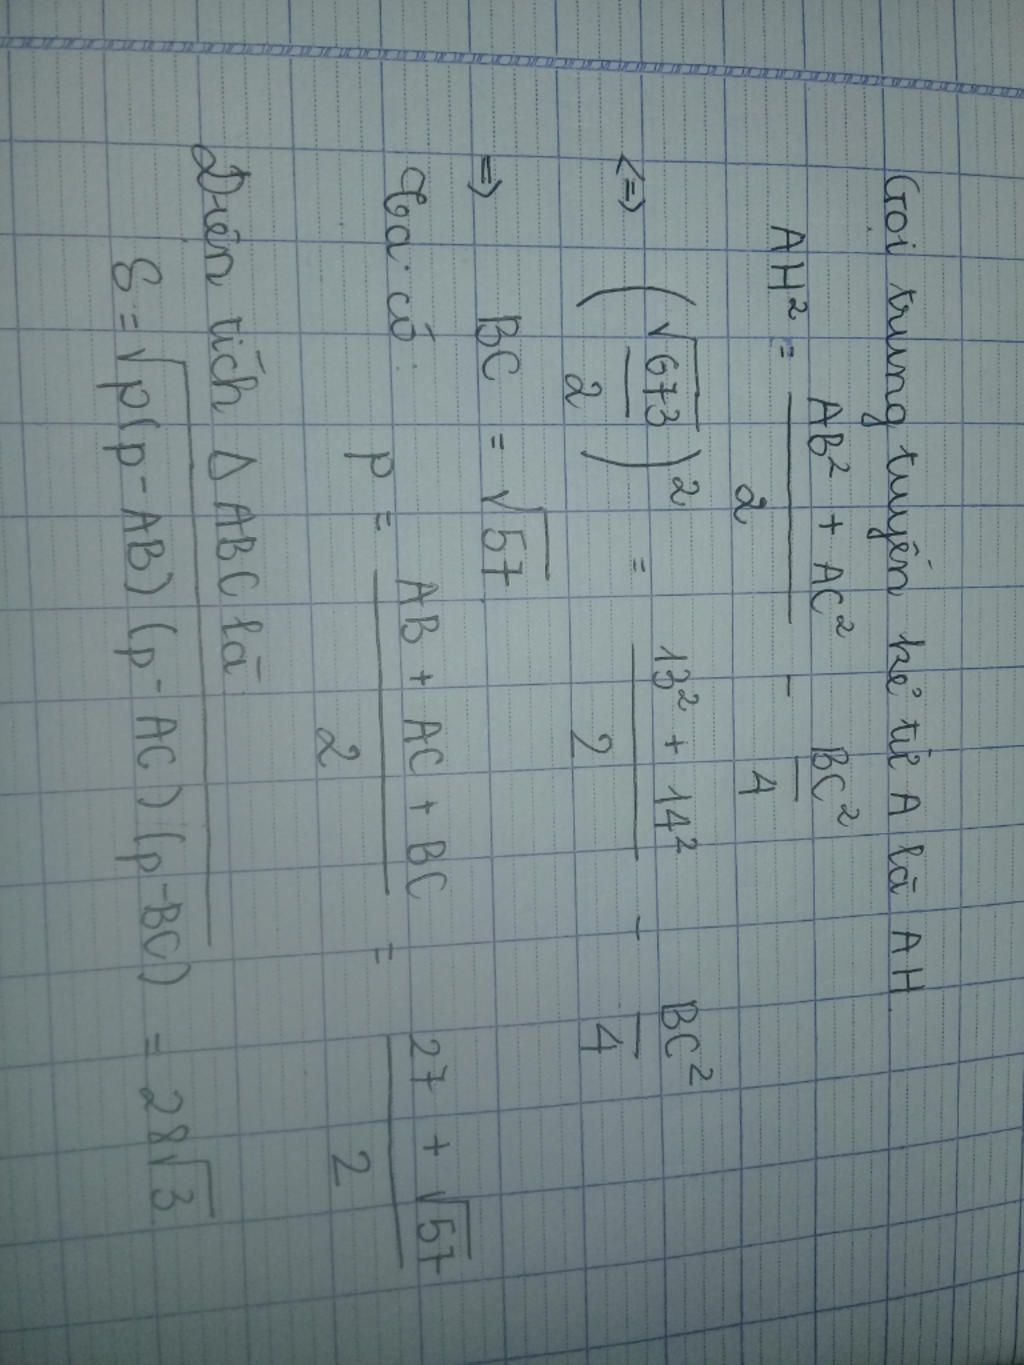 Gọi trung tuyến kẻ từ A là AH
AH² = (AB² + AC²)/2 - BC²/4
<=> (√673/2)² = (13² + 14²)/2 - BC²/4
=> BC = √57
Ta có: p = (AB + AC + BC)/2 = (27 + √57)/2
Diện tích Δ ABC là
S = √p(p-AB)(p-AC)(p-BC) = 28√3